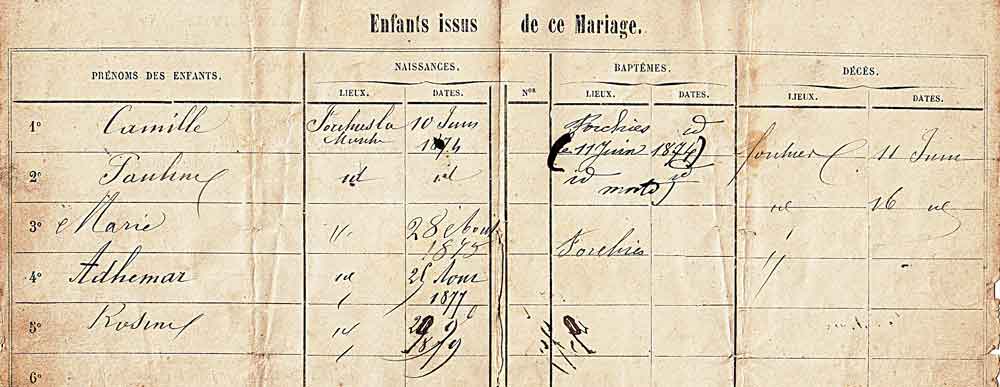 Enfants issus de ce Mariage.
PRÉNOMS DES ENFANTS. NAISSANCES. BAPTÊMES. DÉCÈS.
LIEUX. DATES. Nos LIEUX. DATES. LIEUX. DATES.
1° Camille 10 Juin Forchies id
1874 (le 11 Juin 1874) 11 Juin
2° Pauline id id id id
morte) id 16 id
3° Marie 28 Aout
1875 Forchies
4° Adhemar id Aout
1877
5° Rosine id
1879
6°